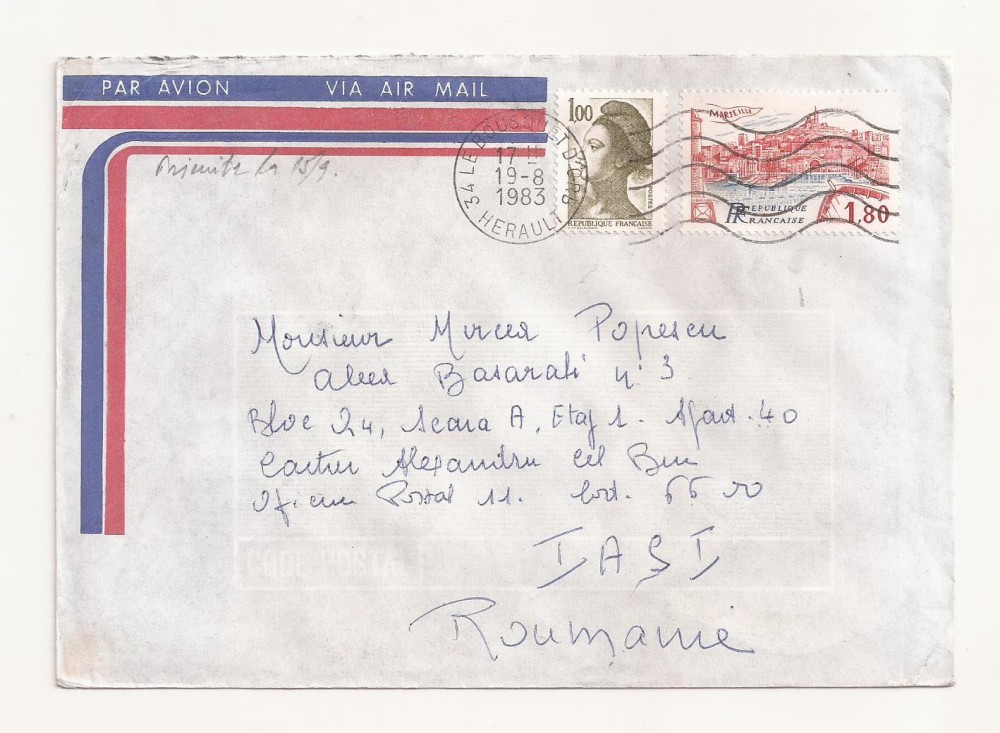 PAR AVION VIA AIR MAIL
Primita la 15/9.
34 LE BOUSQUET D'ORB
17 H
19-8
1983
HERAULT
1,00
POSTES
REPUBLIQUE FRANCAISE
MARSEILLE
REPUBLIQUE
FRANCAISE
1,80
Monsieur Mircea Popescu
Aleea Basarabi n° 3
Bloc 24, Scara A, Etaj 1. Apart. 40
Cartier Alexandru cel Bun
Oficiu Postal 11. Cod. 6600
IAŞI
Roumanie
CODE POSTAL